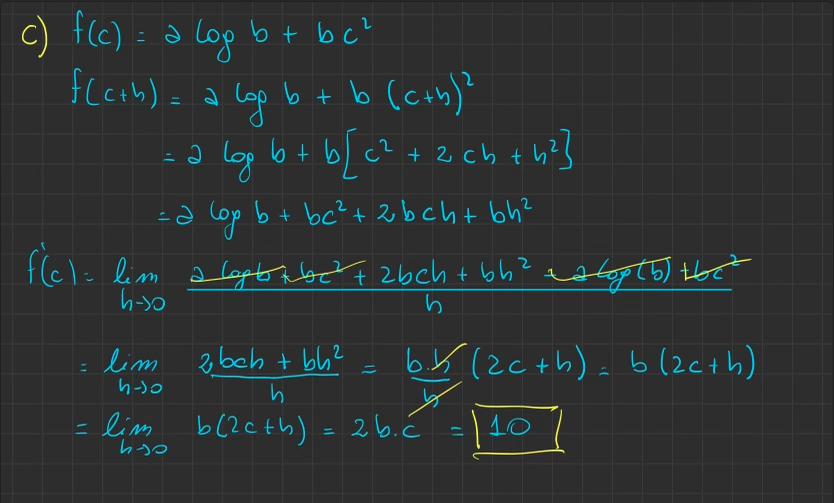 c) f(c) = a log b + bc²
f(c+h) = a log b + b (c+h)²
= a log b + b[c² + 2ch + h²]
= a log b + bc² + 2bch + bh²
f'(c) = lim h→0 (a log b + bc² + 2bch + bh² - a log(b) + bc²) / h
= lim h→0 (2bch + bh²) / h = (b.h / h) (2c+h) = b(2c+h)
= lim h→0 b(2c+h) = 2b.c = 10